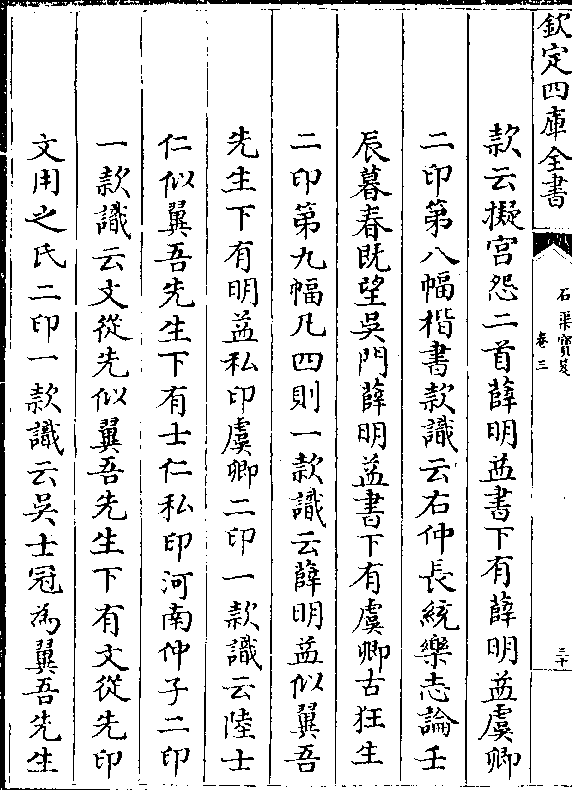 欽定四庫全書
石渠寶笈
卷三
三十
款云擬宫怨二首薛明益書下有薛明益虞卿
二印第八幅楷書款識云右仲長統樂志論壬
辰暮春既望吳門薛明益書下有虞卿古狂生
二印第九幅凡四則一款識云薛明益似翼吾
先生下有明益私印虞卿二印一款識云陸士
仁似翼吾先生下有士仁私印河南仲子二印
一款識云文從先似翼吾先生下有文從先印
文用之氏二印一款識云吳士冠為翼吾先生